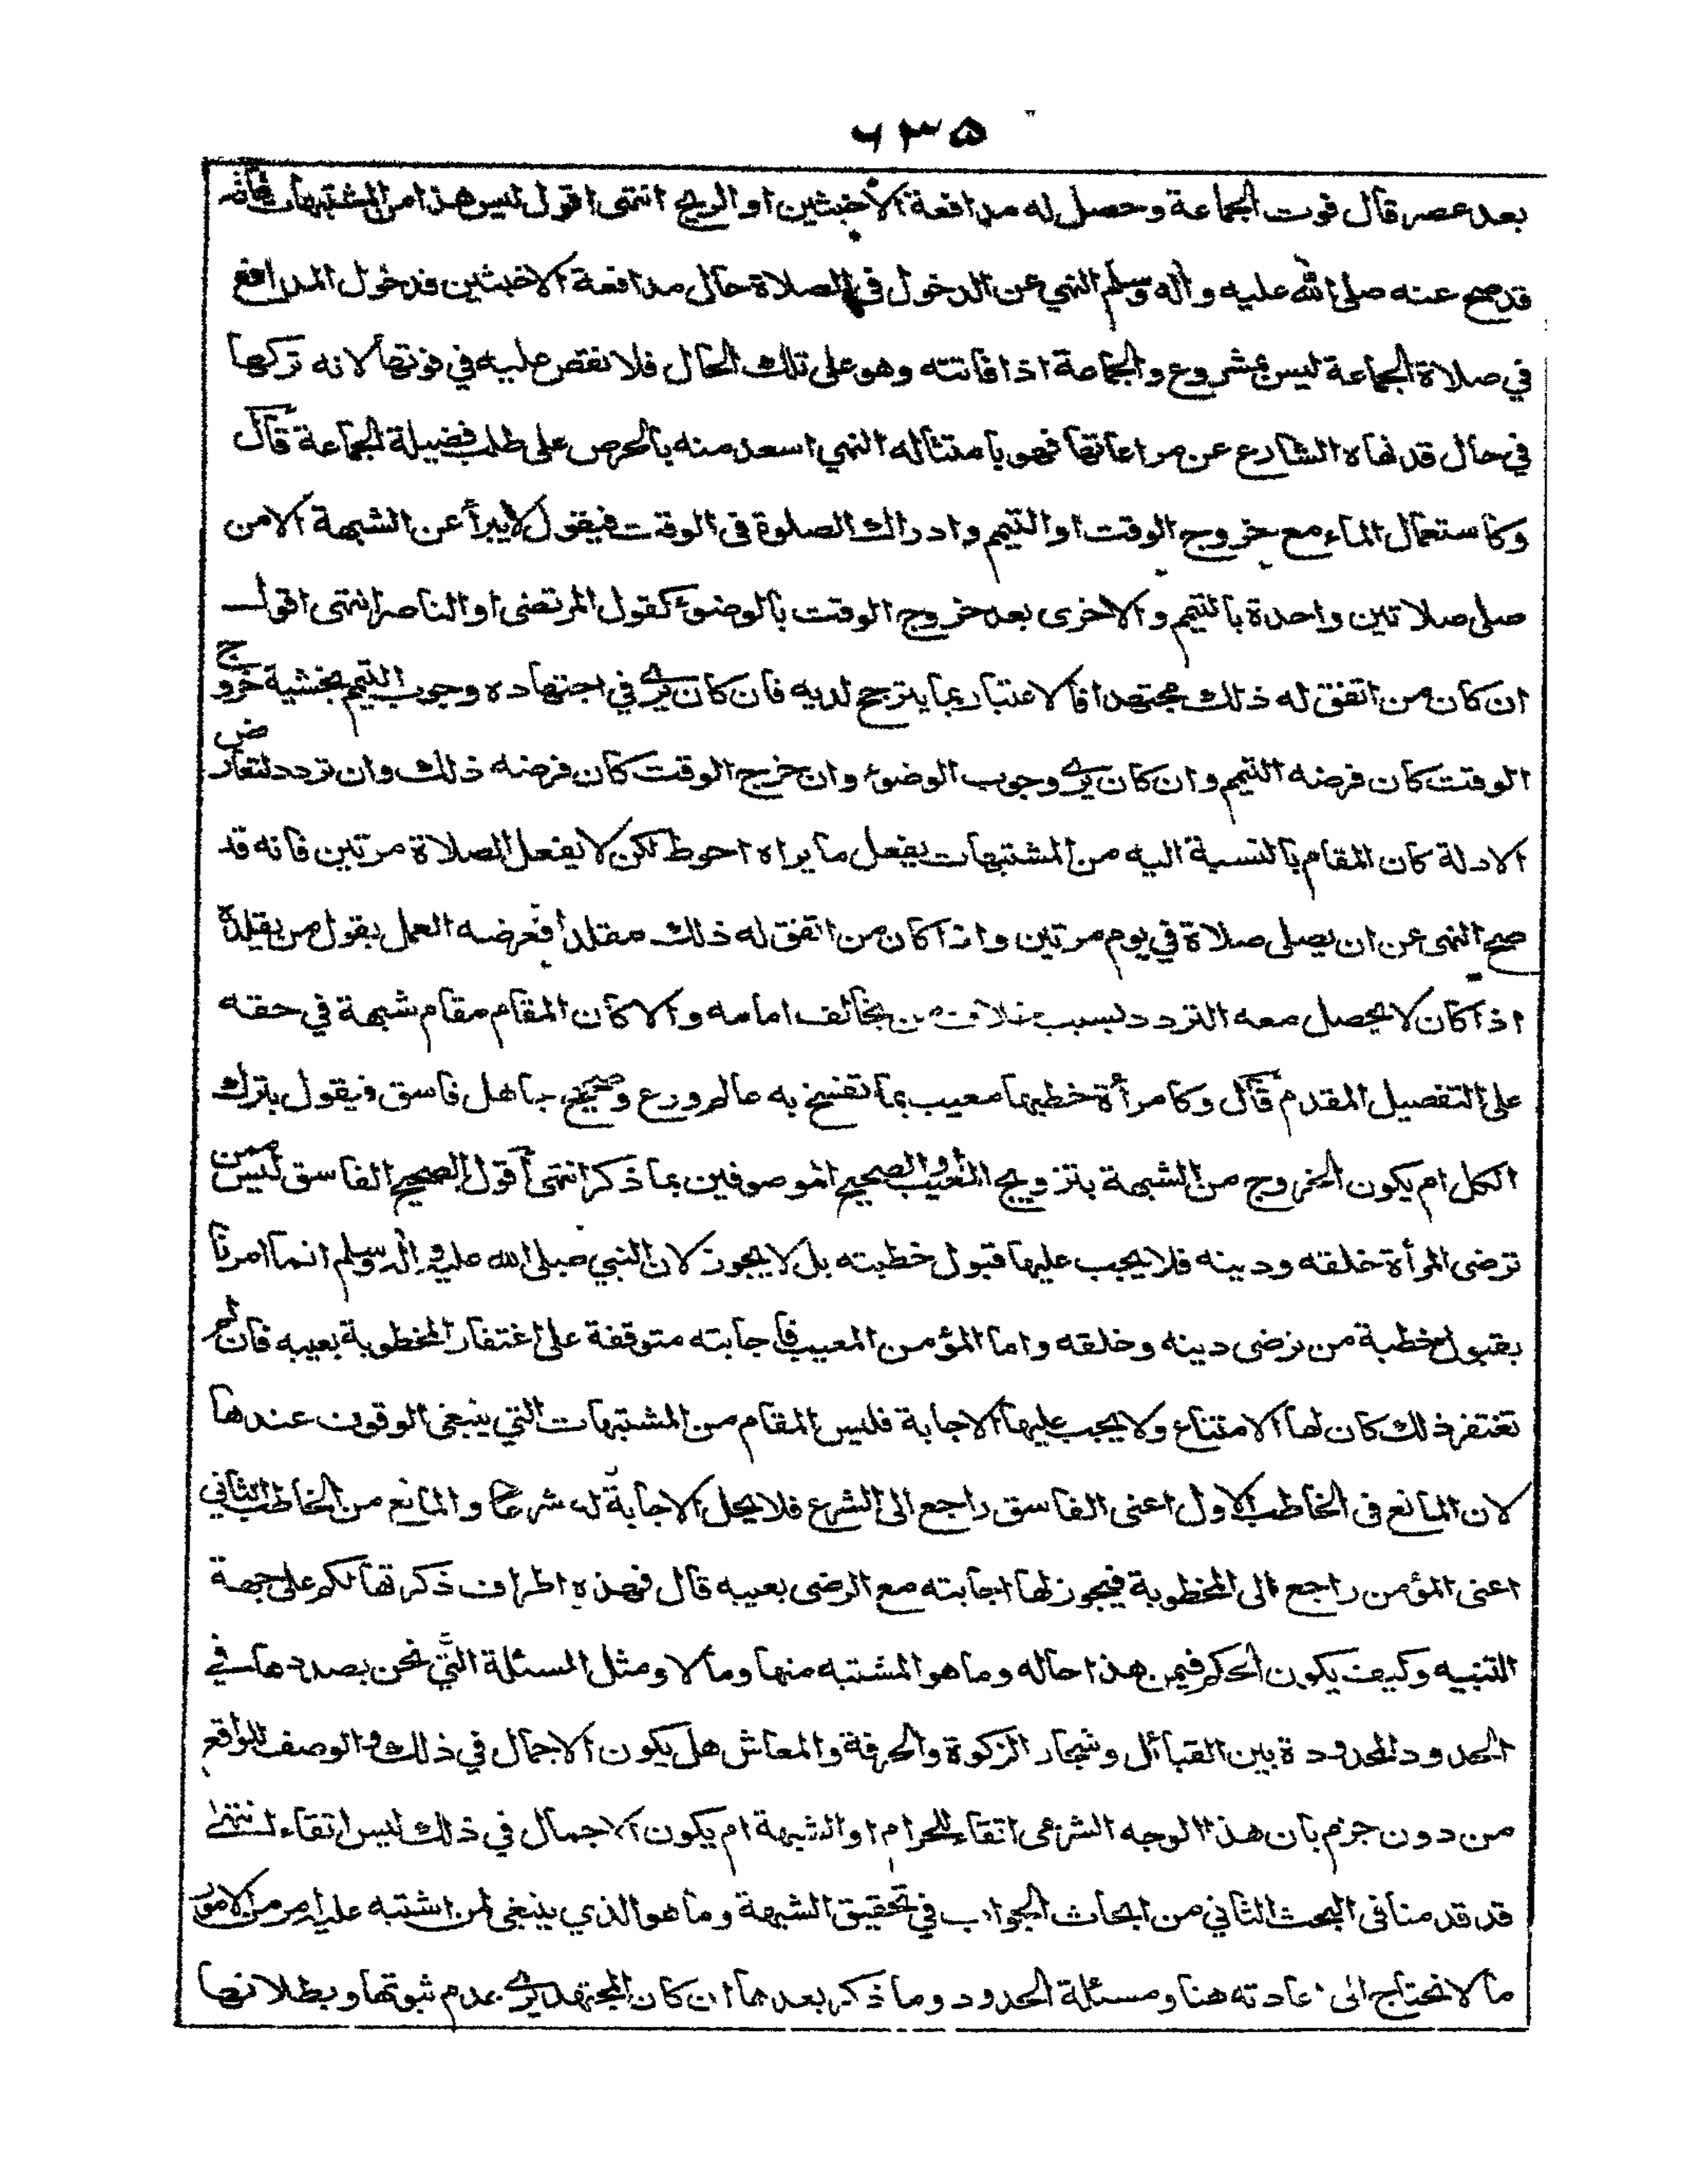 ٦٣٥
بعد عصر قال فوت الجماعة وحصل له مدافعة الأخبثين او الريح انتهى اقول ليس هذا من المشتبهات فانه
قد صح عنه صلى الله عليه وآله وسلم النهي عن الدخول في الصلاة حال مدافعة الاخبثين فدخول المدافع
في صلاة الجماعة ليس بمشروع والجماعة اذا فاتته وهو على تلك الحال فلا نقص عليه في فوتها لانه تركها
في حال قد نهاه الشارع عن مراعاتها فهو بامتثاله النهي اسعد منه بالحرص على طلب فضيلة الجماعة قال
وكاستعمال الماء مع خروج الوقت او التيمم وادراك الصلوة فى الوقت فيقول لا يبرأ عن الشبهة الا من
صلى صلاتين واحدة بالتيمم والاخرى بعد خروج الوقت بالوضوء كقول المرتضى او الناصر انتهى اقول
ان كان من اتفق له ذلك مجتهدا فالاعتبار بما يترجح لديه فان كان يرى في اجتهاده وجوب التيمم بخشية خروج
الوقت كان فرضه التيمم وان كان يرى وجوب الوضوء وان خرج الوقت كان فرضه ذلك وان تردد لتعارض
الادلة كان المقام بالنسبة اليه من المشتبهات يفعل ما يراه احوط لكن لا يفعل الصلاة مرتين فانه قد
صح النهى عن ان يصلى صلاة في يوم مرتين واذا كان من اتفق له ذلك مقلدا ففرضه العمل بقول من يقلده
اذا كان لا يحصل معه التردد بسبب خلاف من يخالف امامه والا كان المقام مقام شبهة في حقه
على التفصيل المقدم قال وكامرأة خطبها معيب بما تفسخ به عالم ورع وصحيح جاهل فاسق فيقول بترك
الكل ام يكون الخروج من الشبهة بتزويج المعيب او الصحيح الموصوفين بما ذكر انتهى اقول الصحيح الفاسق ليس ممن
ترضى المرأة خلقه ودينه فلا يجب عليها قبول خطبته بل لا يجوز لان النبي صلى الله عليه وآله وسلم انما امرنا
بقبول خطبة من نرضى دينه وخلقه واما المؤمن المعيب فاجابته متوقفة على اغتفار المخطوبة بعيبه فان لم
تغتفر ذلك كان لها الامتناع ولا يجب عليها الاجابة فليس المقام من المشتبهات التي ينبغى الوقوف عندها
لان المانع فى الخاطب الاول اعنى الفاسق راجع الى الشرع فلا يحل الاجابة له شرعا والمانع من الخاطب الثاني
اعنى المؤمن راجع الى المخطوبة فيجوز لها اجابته مع الرضى بعيبه قال فهذه اطراف ذكرتها لكم على جهة
التنبيه وكيف يكون الحكم فيمن هذا حاله وما هو المشتبه منها وما لا ومثل المسئلة التي نحن بصددها في
الحدود المحدودة بين القبائل وشجار الزكوة والحرفة والمعاش هل يكون الاجمال في ذلك والوصف للواقع
من دون جزم بان هذا الوجه الشرعى اتقاء للحرام او الشبهة ام يكون الاجمال في ذلك ليس اتقاء انتهى
قد قدمنا فى البحث الثاني من ابحاث الجواب في تحقيق الشبهة وما هو الذي ينبغى لمن اشتبه عليه امر من الامور
ما لا نحتاج الى اعادته هنا ومسئلة الحدود وما ذكر بعدها ان كان المجتهد يرى عدم ثبوتها وبطلانها